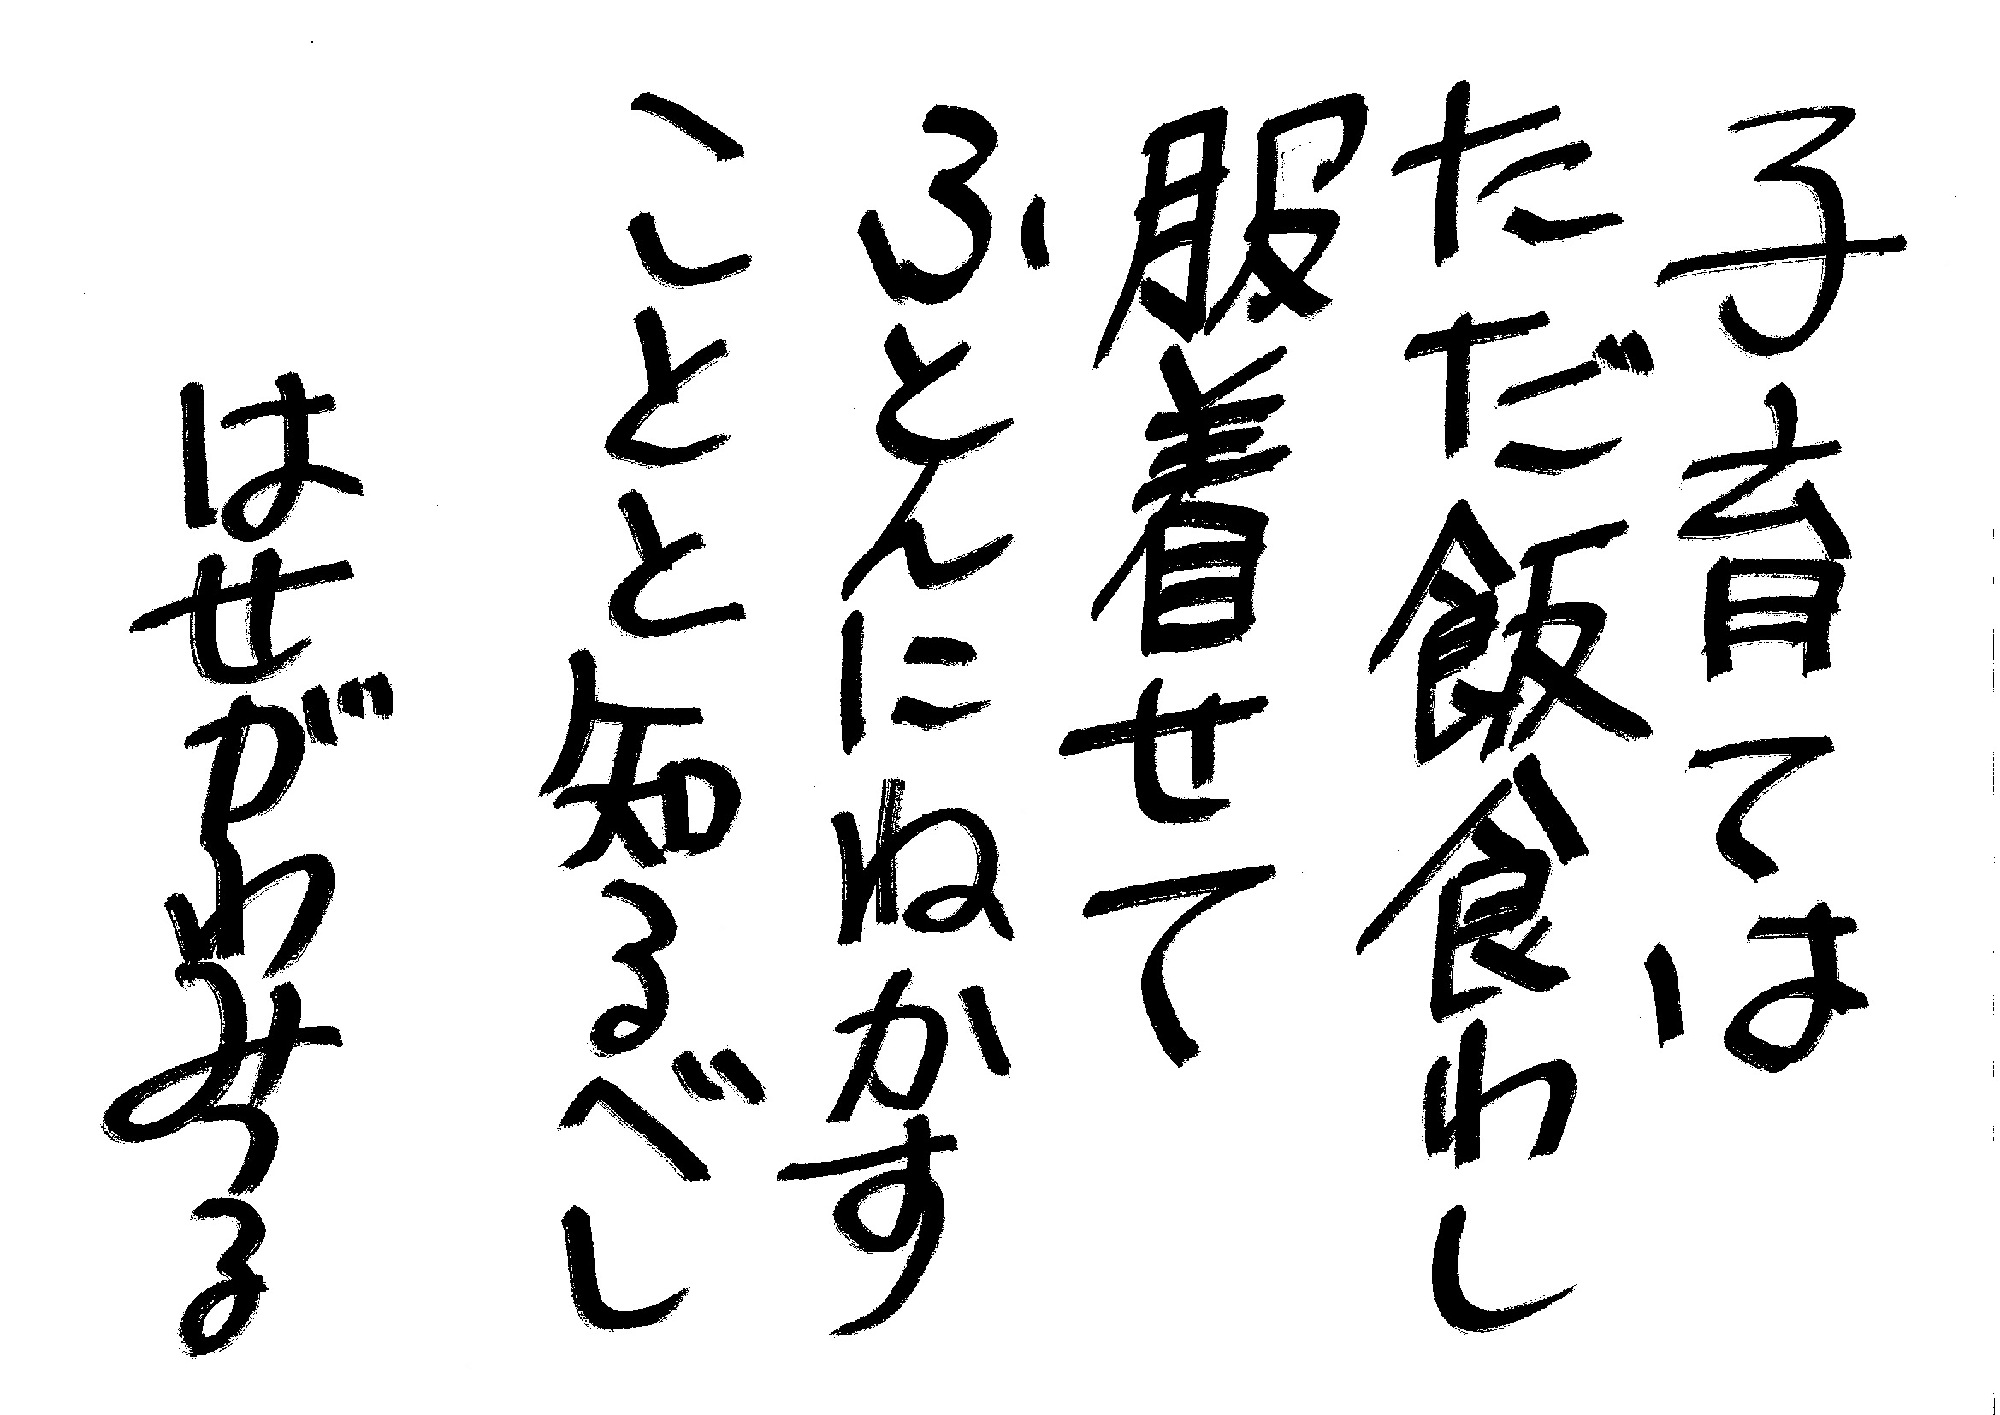 子育ては
ただ飯食わし
服着せて
ふとんにねかす
ことと知るべし
はせがわみつる